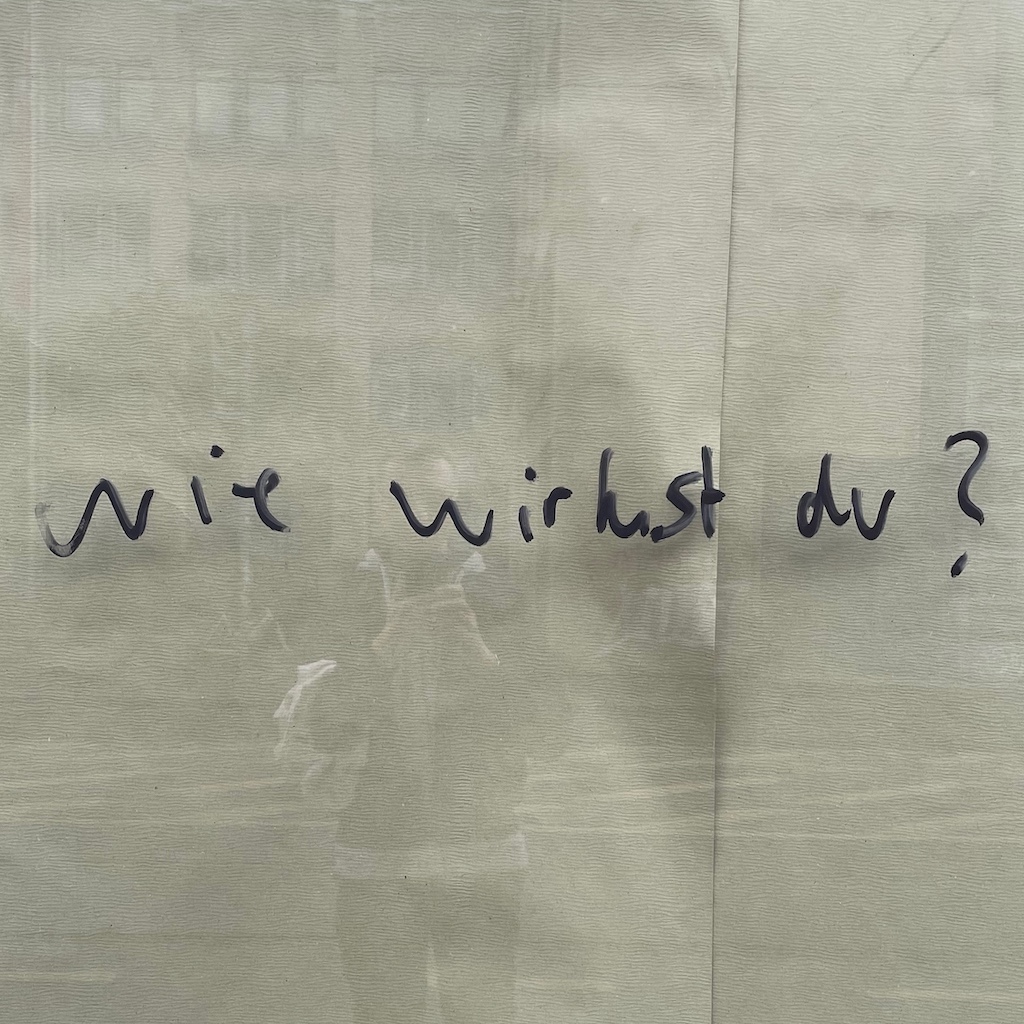 wie wirkst du?